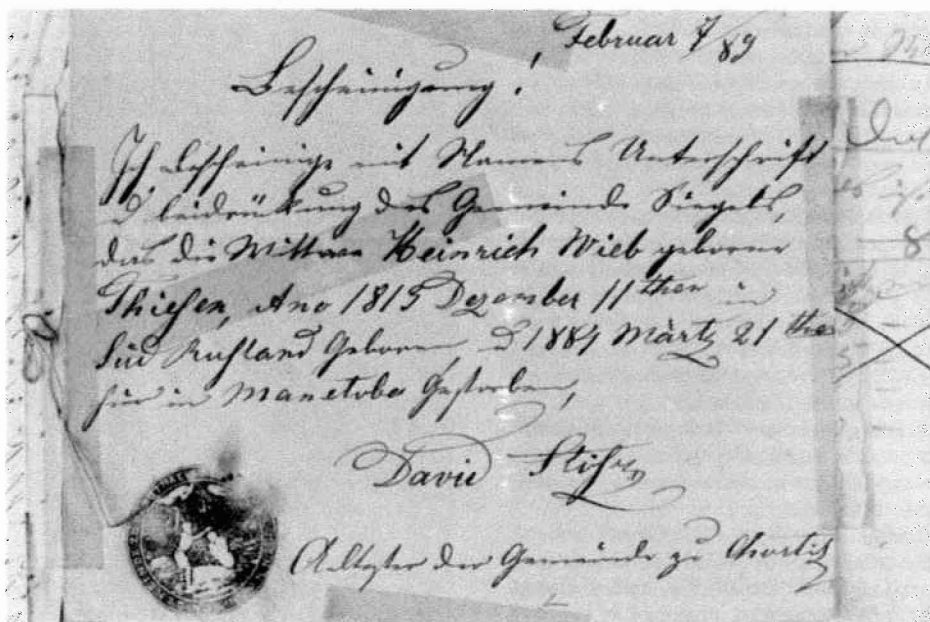 Februar 7/89
Bescheinigung!
Ich bescheinige mit Namens Unterschrift
u beidrückung des Gemeinde Siegels,
das die Wittwe Heinrich Wieb geborne
Thiesen, Ano 1815 Dezember 11then in
Süd Rußland Geboren, u 1884 Märtz 21then
hier in Manetoba Gestorben,
David Stößz
Aeltester der Gemeinde zu Chortitz